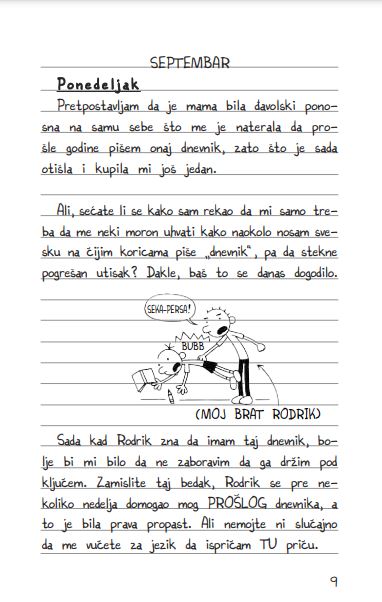 SEPTEMBAR
Ponedeljak
Pretpostavljam da je mama bila davolski pono-
sna na samu sebe što me je naterala da pro-
šle godine pišem onaj dnevnik, zato što je sada
otišla i kupila mi još jedan.
Ali, sećate li se kako sam rekao da mi samo tre-
ba da me neki moron uhvati kako naokolo nosam sve-
sku na čijim koricama piše „dnevnik“, pa da stekne
pogrešan utisak? Dakle, baš to se danas dogodilo.
SEKA-PERSA!
BUBB
(MOJ BRAT RODRIK)
Sada kad Rodrik zna da imam taj dnevnik, bo-
lje bi mi bilo da ne zaboravim da ga držim pod
ključem. Zamislite taj bedak, Rodrik se pre ne-
koliko nedelja domogao mog PROŠLOG dnevnika, a
to je bila prava propast. Ali nemojte ni slučajno
da me vučete za jezik da ispričam TU priču.
9